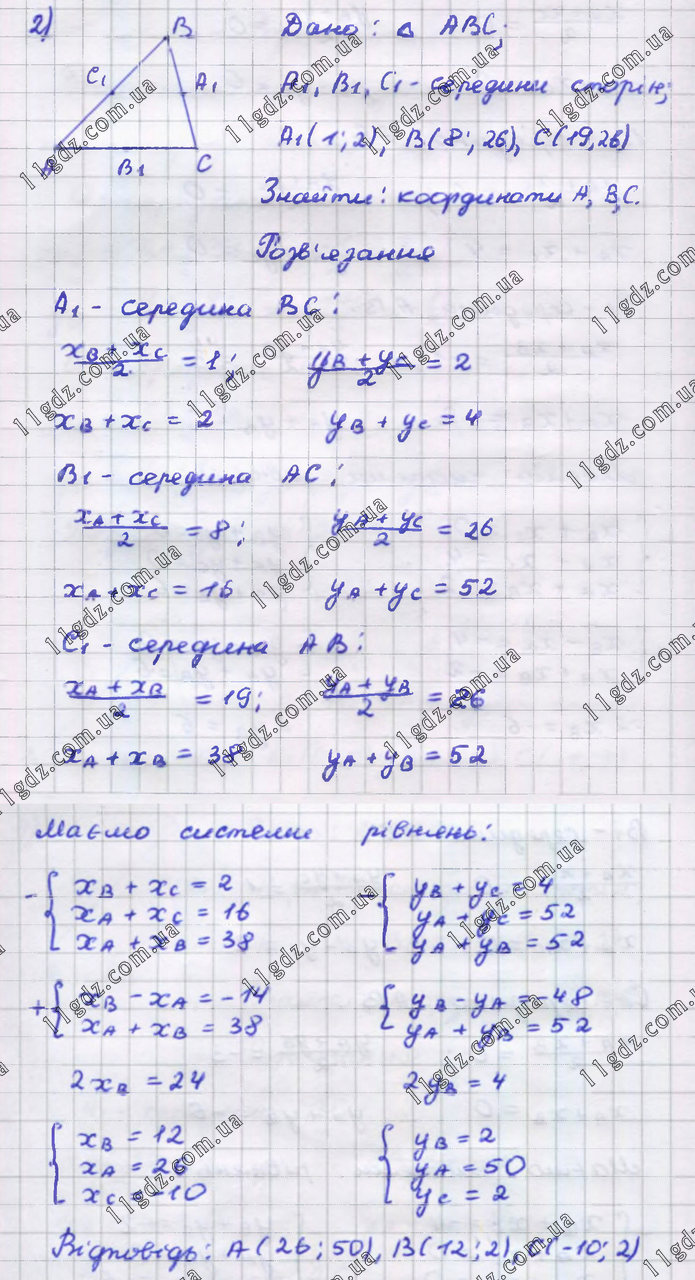 2)
B
C₁ A₁
A B₁ C
Дано: △ ABC;
A₁, B₁, C₁ - середини сторін;
A₁(1;2), B(8;26), C(19,26)
Знайти: координати A, B, C.
Розв'язання
A₁ - середина BC:
(x_B + x_C)/2 = 1; (y_B + y_C)/2 = 2
x_B + x_C = 2 y_B + y_C = 4
B₁ - середина AC;
(x_A + x_C)/2 = 8; (y_A + y_C)/2 = 26
x_A + x_C = 16 y_A + y_C = 52
C₁ - середина AB:
(x_A + x_B)/2 = 19; (y_A + y_B)/2 = 26
x_A + x_B = 38 y_A + y_B = 52
Маємо системи рівнень:
- { x_B + x_C = 2 - { y_B + y_C = 4
x_A + x_C = 16 y_A + y_C = 52
x_A + x_B = 38 y_A + y_B = 52
+ { x_B - x_A = -14 { y_B - y_A = -48
x_A + x_B = 38 y_A + y_B = 52
2x_B = 24 2y_B = 4
{ x_B = 12 { y_B = 2
x_A = 26 y_A = 50
x_C = -10 y_C = 2
Відповідь: A(26;50), B(12;2), C(-10;2)
11gdz.com.ua